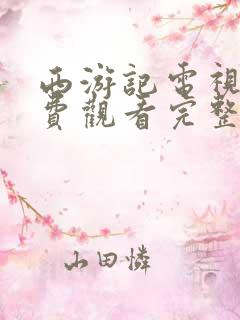 西游記電視
費觀看完整
山田憐